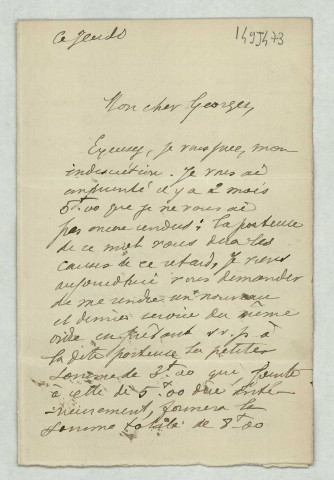 Ce Jeudi
1495473
Mon cher Georges,
Excusez, je vous prie, mon
indiscrétion. Je vous ai
emprunté il y a 2 mois
5f.00 que je ne vous ai
pas encore rendus; la porteuse
de ce mot vous dira les
causes de ce retard, Je viens
aujourd'hui vous demander
de me rendre un nouveau
et dernier service du même
ordre en prêtant s.v.p à
la dite porteuse la petite
somme de 3f.00 que, jointe
à celle de 5f.00 due anté-
rieurement, formera la
somme totale de 8f.00